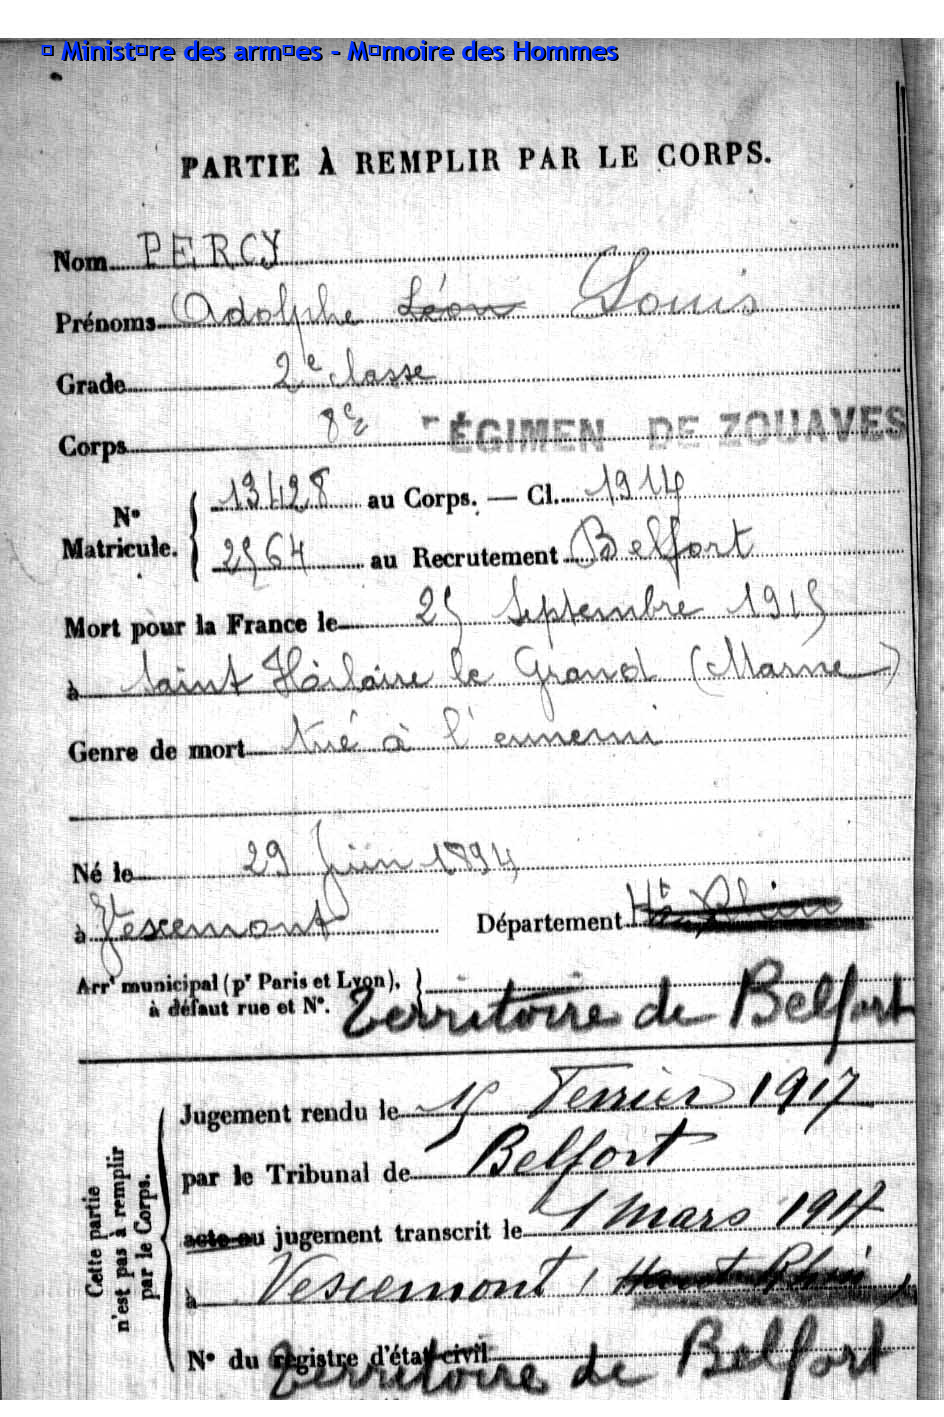 © Ministère des armées - Mémoire des Hommes
PARTIE À REMPLIR PAR LE CORPS.
Nom PERCY
Prénoms Adolphe Léon Louis
Grade 2e classe
Corps 8e RÉGIMEN DE ZOUAVES
N° Matricule. 13428 au Corps. — Cl. 1914
2564 au Recrutement Belfort
Mort pour la France le 25 Septembre 1915
à Saint Hilaire le Grand (Marne)
Genre de mort tué à l'ennemi
Né le 29 Juin 1894
à Vescemont Département Ht Rhin
Arrt municipal (pr Paris et Lyon),
à défaut rue et N°. Territoire de Belfort
Cette partie n'est pas à remplir par le Corps.
Jugement rendu le 15 Février 1917
par le Tribunal de Belfort
acte ou jugement transcrit le 1 mars 1917
à Vescemont, Haut Rhin
N° du registre d'état civil
Territoire de Belfort